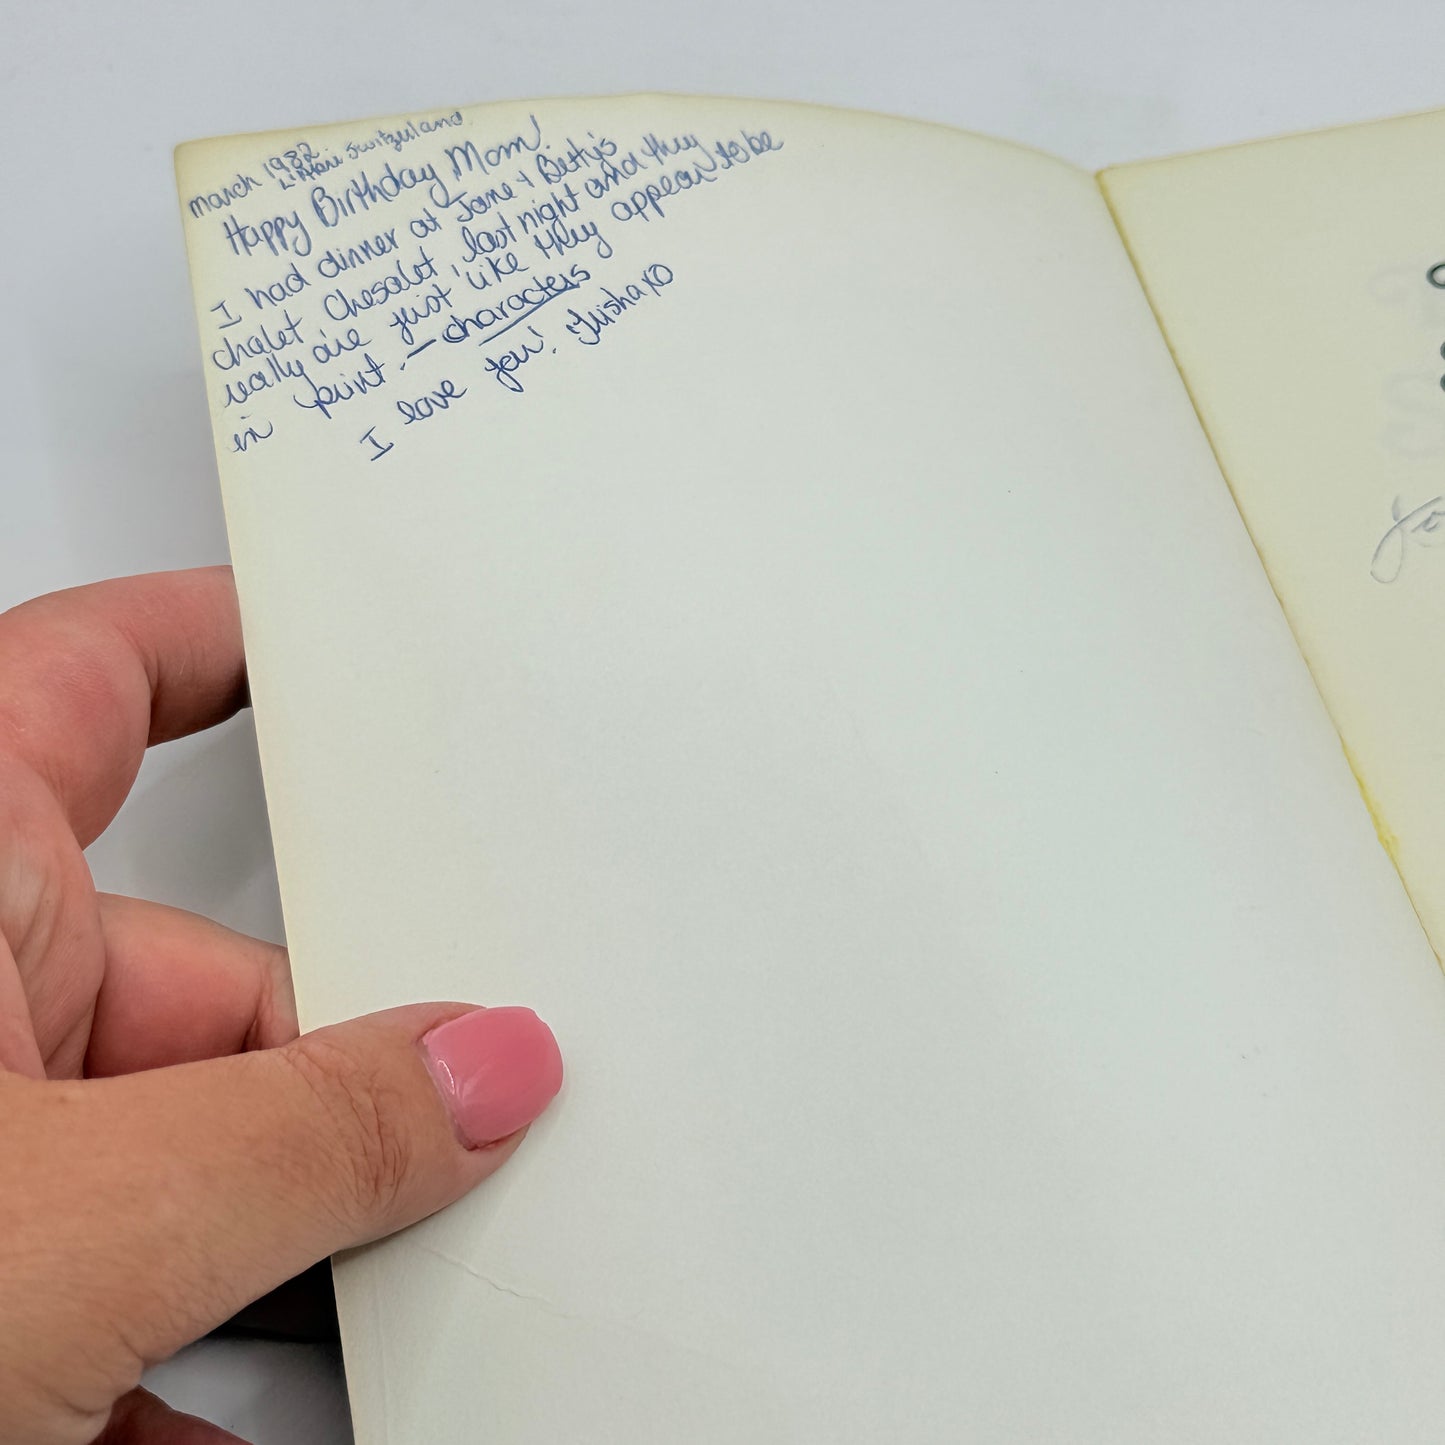 march 1982
Switzerland.
Happy Birthday Mom!
I had dinner at Jane & Betty's
chalet Chesalet, last night and they
really are just like they appear to be
in print. — characters
I love you! Trisha xo
yo